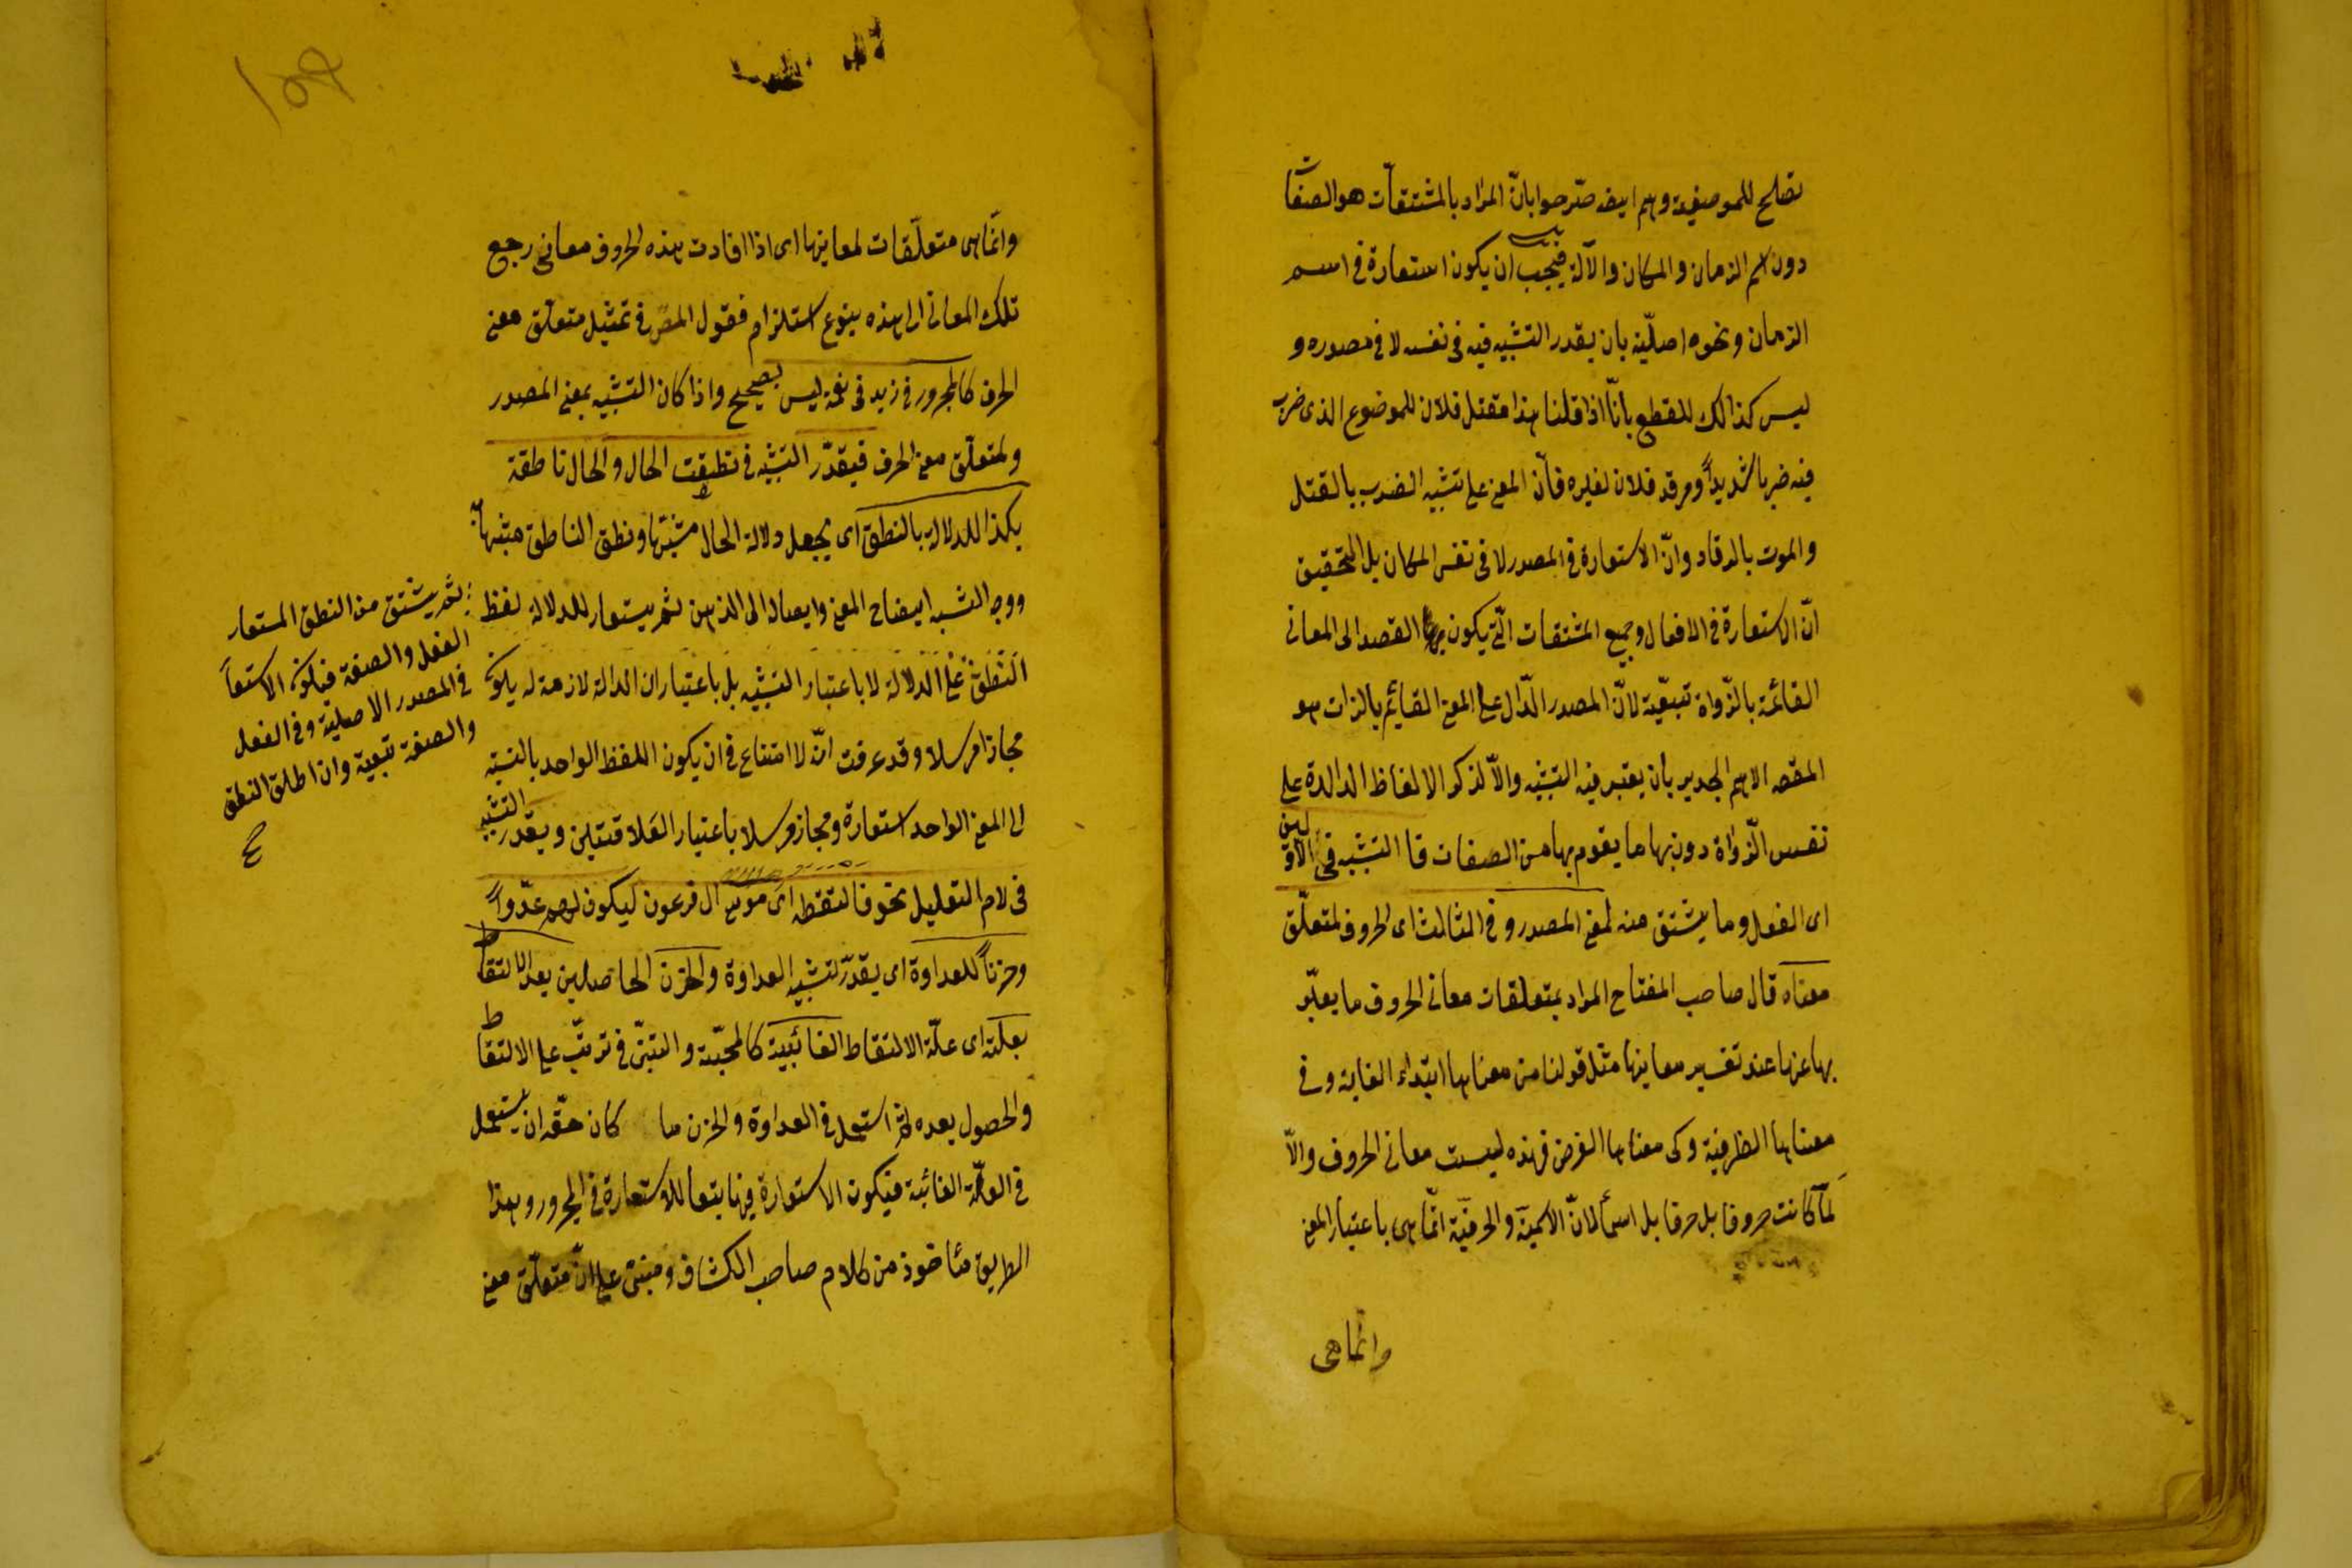 تصلح للموصوفية وهم ايضا صرّحوا بانّ المراد بالمشتقّات هو الصفات
دون اسم الزمان والمكان والآلة فيجب ان يكون استعارة فى اسم
الزمان ونحوه اصليّة بان يقدر التشبيه فيه فى نفسه لا فى مصدره و
ليس كذالك للقطع بانّا اذا قلنا هذا مقتل فلان للموضوع الذى ضرب
فيه ضربا شديداً ومرقد فلان لغيره فانّ المعنى على تشبيه الضرب بالقتل
والموت بالرقاد وانّ الاستعارة فى المصدر لا فى نفس المكان بل التحقيق
انّ الاستعارة فى الافعال وجميع المشتقات الّتى يكون بها القصد الى المعانى
القائمة بالذّواة تبعيّة لانّ المصدر الدّال على المعنى القائم بالذات هو
المقصد الاهم الجدير بان يعتبر فيه التشبيه والّا لذكر الالفاظ الدالة على
نفس الذّواة دون بها ما يقوم بها من الصفات فا التشبيه فى الاوّلين
اى الفعل وما يشتق منه لمعنى المصدر و فى الثالث اى الحروف لمتعلّق
معناه قال صاحب المفتاح المراد بمتعلقات معانى الحروف ما يعبّر
بها عنها عند تفسير معاينها مثل قولنا من معناها ابتداء الغاية وفى
معناها الظرفية وكى معناها الغرض فهذه ليست معانى الحروف والّا
لما كانت حروفا بل حرفا بل اسمأ لانّ الاسمية والحرفيّة انّما هى باعتبار المعنى
وانما هى
وانّما هى متعلّقات لمعاينها اى اذا افادت هذه الحروف معانى رجع
تلك المعانى الى هذه بنوع استلزام فقول المصنّف فى تمثيل متعلّق معنى
الحرف كالمجرور فى زيد فى نعمة ليس بصحيح واذا كان التشبيه لمعنى المصدر
ولمتعلّق معنى الحرف فيقدّر التشبيه فى نطقت الحال والحال ناطقة
بكذا للدلالة بالنطق اى يجعل دلالة الحال مشبّها ونطق الناطق مشبّها به
ووجه الشبه ايضاح المعنى وايصاله الى الذهن ثم يستعار للدلالة لفظ
النّطق على الدلالة لا باعتبار التشبيه بل باعتبار ان الدالة لازمة له يكون
مجازا مرسلا وقد عرفت انّ لا امتناع فى ان يكون اللفظ الواحد بالنسبة
الى المعنى الواحد استعارة ومجازا مرسلا باعتبار العلاقتين ويقدّر التشبيه
فى لام التعليل نحو فالتقطه اى موسى آل فرعون ليكون لهم عدّواً
وحزناً للعداوة اى يقدّر تشبيه العداوة والحزن الحاصلين بعد الالتقاط
بعلّته اى علّة الالتقاط الغائبيّة كالمحبّة والتبنّى فى ترتّب على الالتقاط
والحصول بعده ثم استعمل فى العداوة والحزن ما كان حقّه ان يستعمل
فى العلّة الغائبة فيكون الاستعارة فيها تبعا للاستعارة فى المجرور وهذا
الطريق مٔاخوذ من كلام صاحب الكشاف ومبنىّ على انّ متعلّق معنى
ثم يشتق من النطق المستعار
الفعل والصفة فيكون الاستعا
فى المصدر الاصلية وفى الفعل
والصفة تبعية وان اطلق النطق